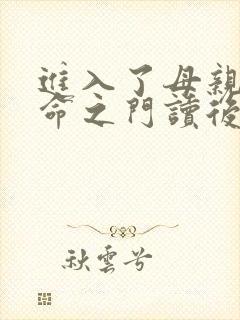 進入了母親
命之門讀後
秋雲兮